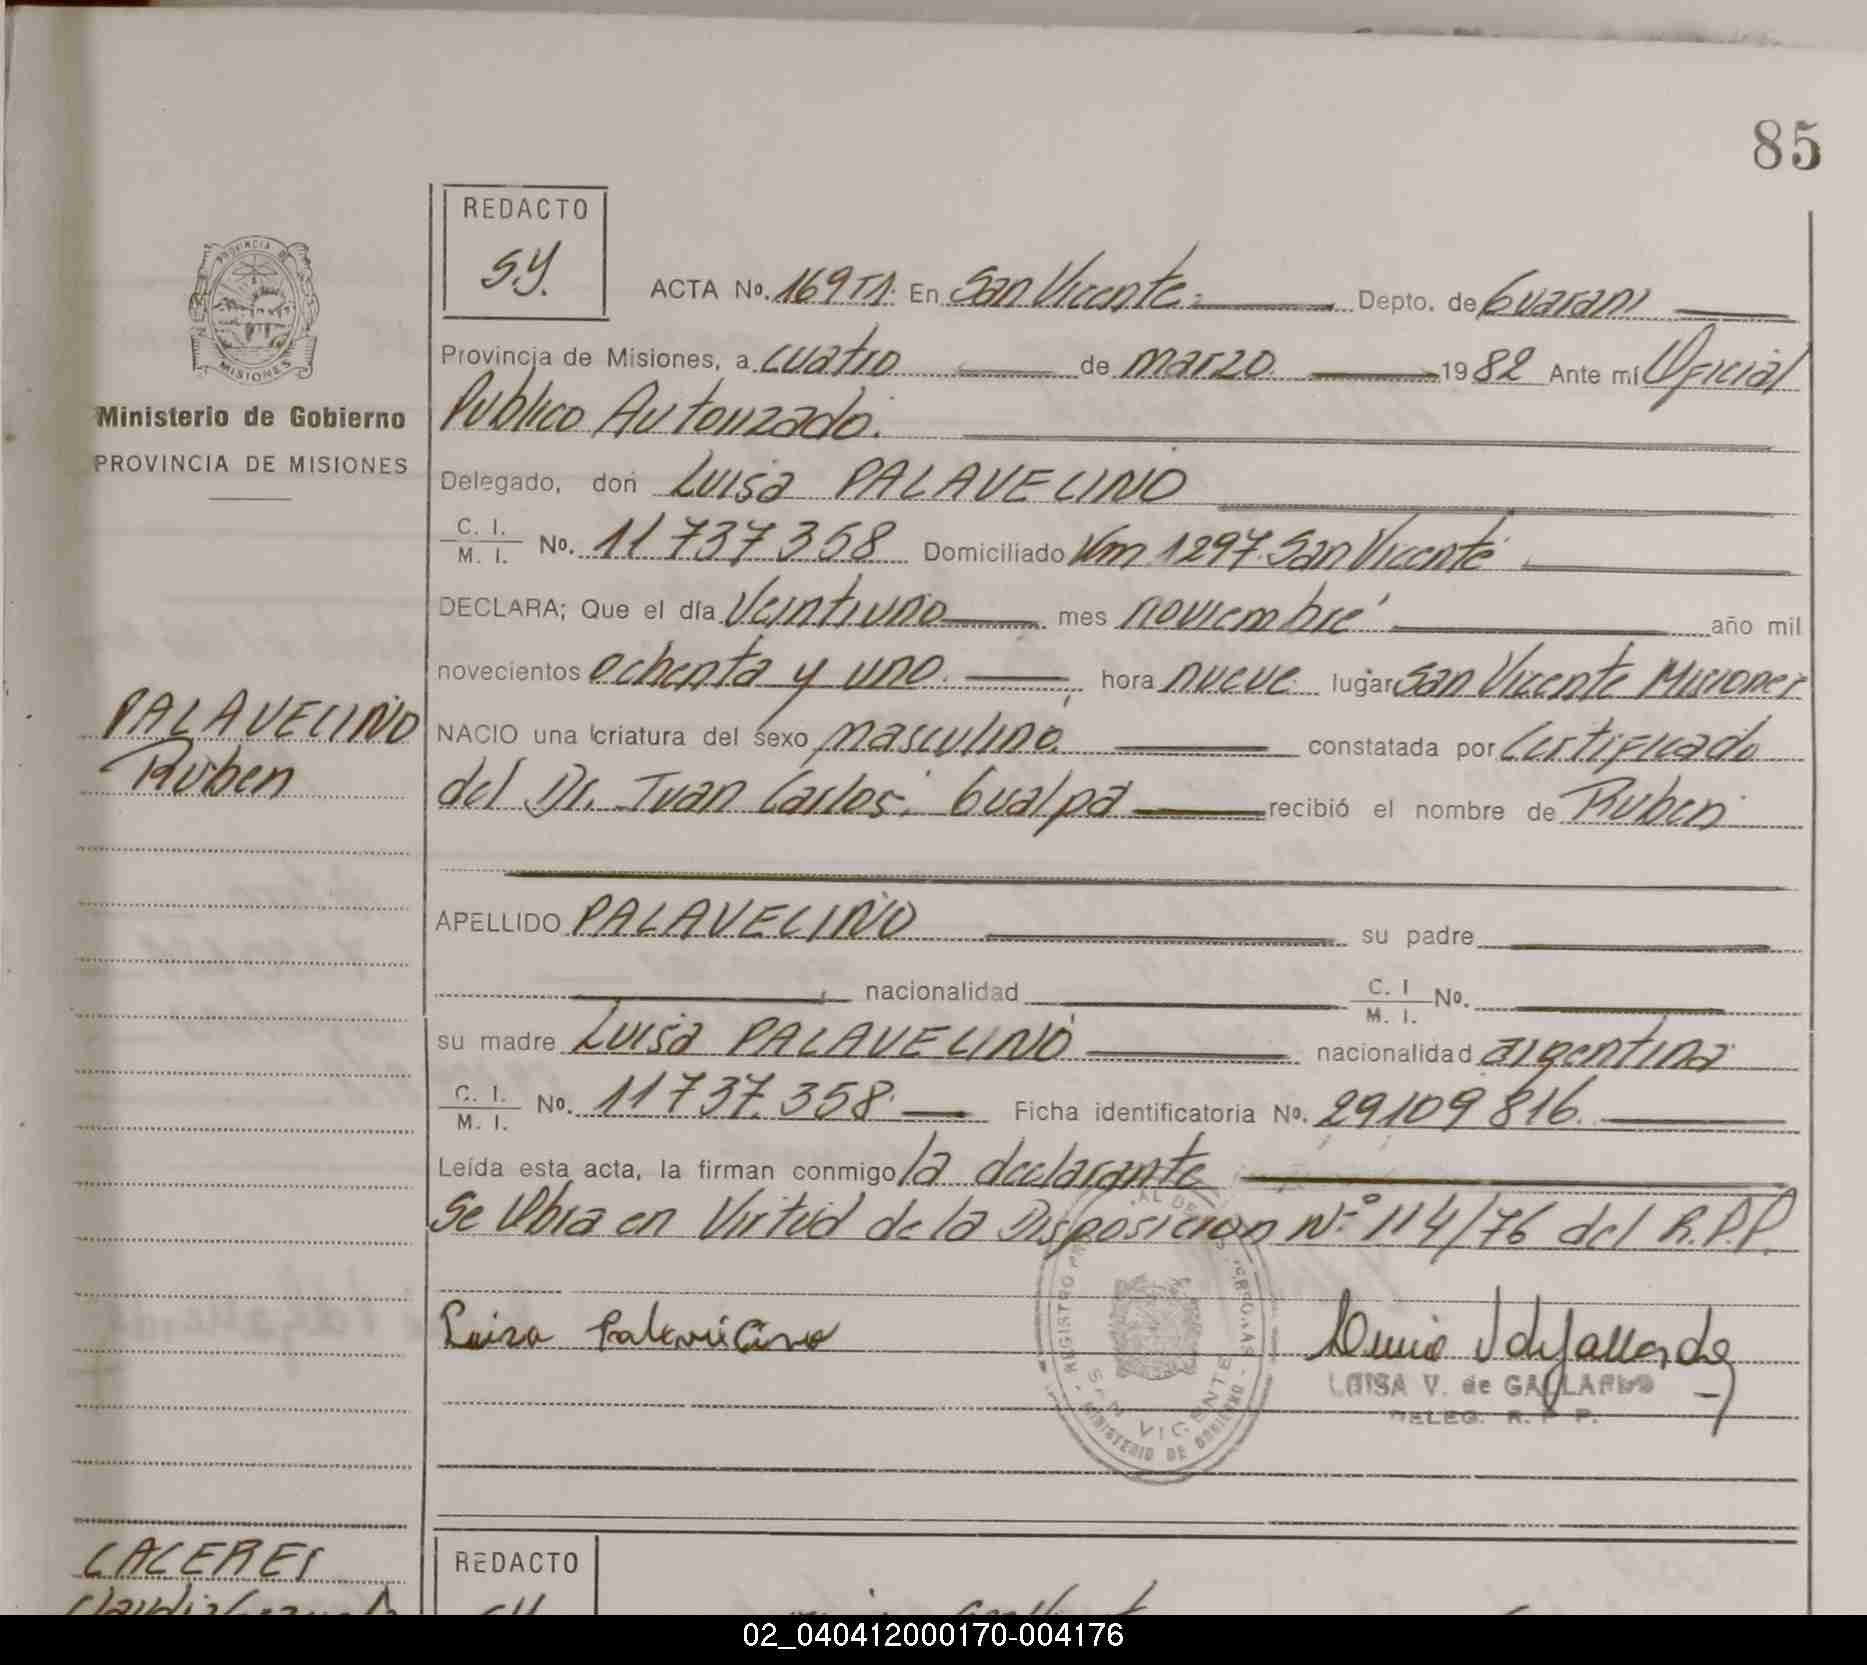 85
REDACTO
S.Y.
PROVINCIA DE
MISIONES
Ministerio de Gobierno
PROVINCIA DE MISIONES
ACTA No. 169 T1. En San Vicente. Depto. de Guarani
Provincia de Misiones, a cuatro de marzo 1982 Ante mí Oficial
Publico Autorizado.
Delegado, don Luisa PALAVECINO
C. I. / M. I. No. 11 737 358 Domiciliado Km 1297 San Vicente
DECLARA; Que el día Veintiuno mes noviembre año mil
novecientos ochenta y uno hora nueve lugar San Vicente Misiones
PALAVECINO
Ruben
NACIO una criatura del sexo masculino constatada por Certificado
del Dr. Juan Carlos Gualpa recibió el nombre de Ruben
APELLIDO PALAVECINO su padre
nacionalidad C. I / M. I. No.
su madre Luisa PALAVECINO nacionalidad argentina
C. I. / M. I. No. 11 737.358 Ficha identificatoria No. 29109816.
Leída esta acta, la firman conmigo la declarante
Se Obra en Virtud de la Disposicion N° 114/76 del R.P.P.
Luisa Palavecino
SAN VICENTE
MINISTERIO DE GOBIERNO
LUISA V. de GALLARDO
DELEG. R. P P.
CACERES
REDACTO
02_040412000170-004176